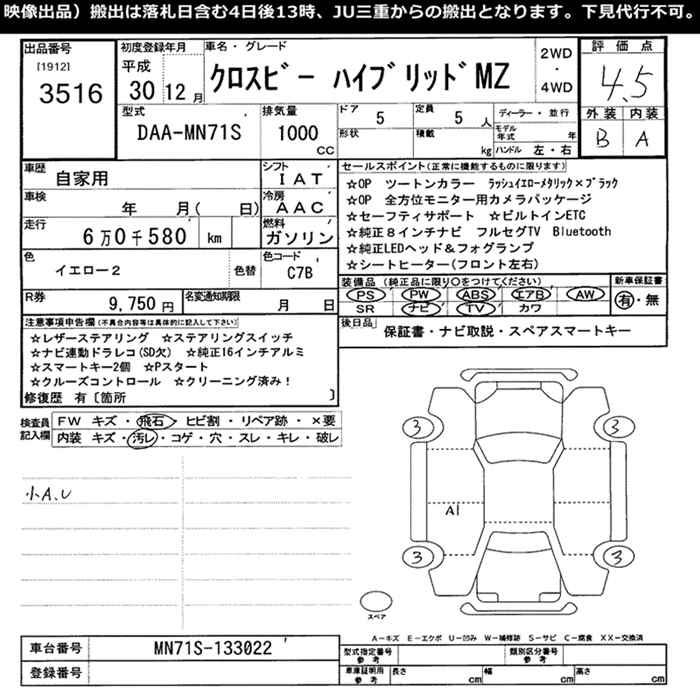 映像出品）搬出は落札日含む4日後13時、JU三重からの搬出となります。下見代行不可。
出品番号
[1912]
3516
初度登録年月
平成
30 12 月
車名・グレード
クロスビー ハイブリッドMZ
2WD
・
4WD
評価点
4.5
外装 内装
B A
型式
DAA-MN71S
排気量
1000
CC
ドア
5
定員
5 人
形状
積載
kg
ディーラー・並行
モデル年式 年
ハンドル 左・右
車歴
自家用
シフト
IAT
車検
年 月( 日)
冷房
AAC
走行
6万0千580 km
燃料
ガソリン
色
イエロー2
色替
色コード
C7B
R券
9,750 円
名変通知期限
月 日
セールスポイント(正常に機能するものに限ります)
☆OP ツートンカラー ラッシュイエローメタリック×ブラック
☆OP 全方位モニター用カメラパッケージ
☆セーフティサポート ☆ビルトインETC
☆純正8インチナビ フルセグTV Bluetooth
☆純正LEDヘッド&フォグランプ
☆シートヒーター(フロント左右)
装備品 (純正品に限り○をつけてください)
新車保証書
PS PW ABS エアB AW
SR ナビ TV カワ
有・無
後日品
保証書・ナビ取説・スペアスマートキー
注意事項申告欄(不具合内容等は具体的に記入して下さい)
☆レザーステアリング ☆ステアリングスイッチ
☆ナビ連動ドラレコ(SD欠) ☆純正16インチアルミ
☆スマートキー2個 ☆Pスタート
☆クルーズコントロール ☆クリーニング済み!
修復歴 有〔箇所 〕
検査員記入欄
FW キズ・飛石・ヒビ割・リペア跡・×要
内装 キズ・汚レ・コゲ・穴・スレ・キレ・破レ
小A、U
3
3
A1
3
3
スペア
A－キズ E－エクボ U－凹み W－補修跡 S－サビ C－腐食 XX－交換済
車台番号
MN71S-133022
登録番号
型式指定番号
参考
類別区分番号
参考
車庫証明用
参考
長さ cm
幅 cm
高さ cm